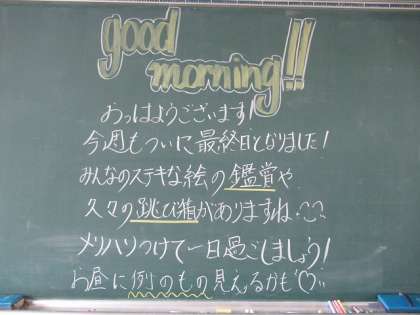 good
morning!!
おっはようございます!
今週もついに最終日となりました!
みんなのステキな絵の鑑賞や
久々の跳び箱がありますね
メリハリつけて一日過ごしましょう!
お昼に例のもの見えるかも♡